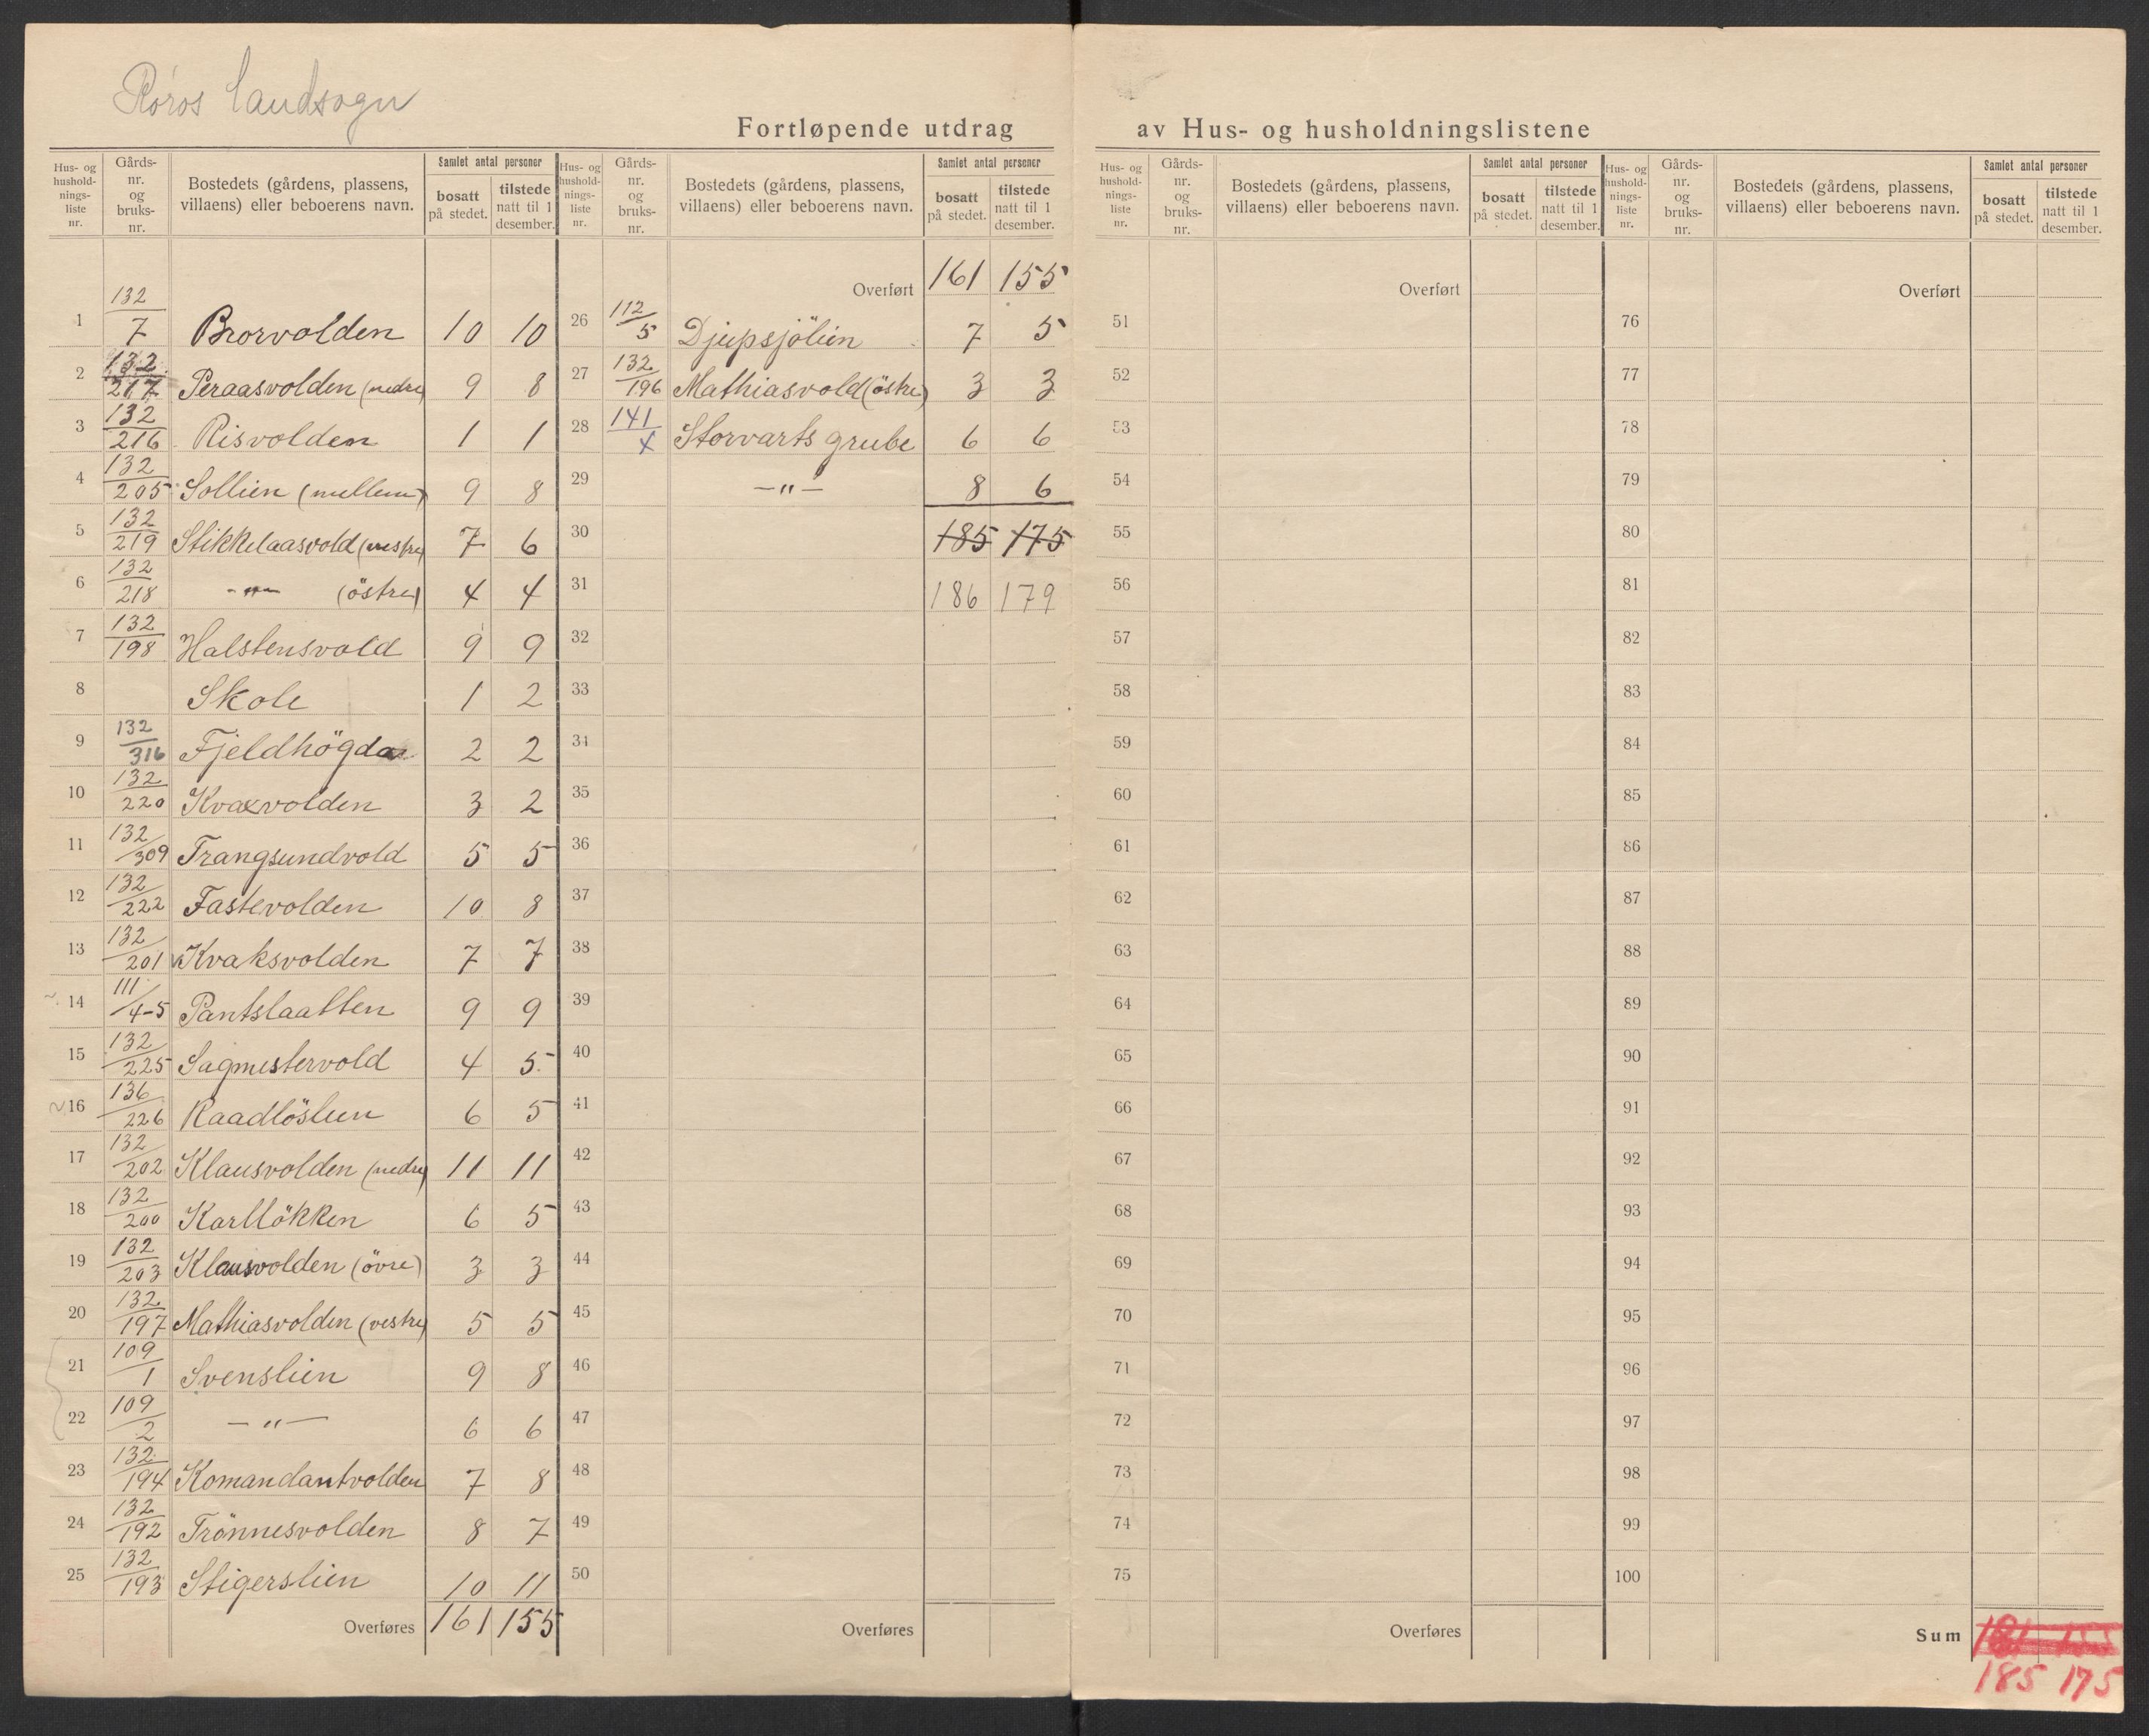 Röros landsogn
Fortløpende utdrag av Hus- og husholdningslistene
Hus- og hushold-nings-liste nr. Gårds-nr. og bruks-nr. Bostedets (gårdens, plassens, villaens) eller beboerens navn. Samlet antal personer bosatt på stedet. tilstede natt til 1 desember.
1 132/7 Brorvolden 10 10
2 132/217 Peraasvolden (nedre) 9 8
3 132/216 Risvolden 1 1
4 132/205 Sollien (mellem) 9 8
5 132/219 Stikkelaasvold (vestre) 7 6
6 132/218 -"- (östre) 4 4
7 132/198 Halstensvold 9 9
8 Skole 1 2
9 132/316 Fjeldhögda 2 2
10 132/220 Kvaxvolden 3 2
11 132/309 Trangsundvold 5 5
12 132/222 Fastevolden 10 8
13 132/201 Kvaksvolden 7 7
14 111/4-5 Pantslaatten 9 9
15 132/225 Sagmestervold 4 5
16 136/226 Raadlöslien 6 5
17 132/202 Klausvolden (nedre) 11 11
18 132/200 Karllökken 6 5
19 132/203 Klausvolden (övre) 3 3
20 132/197 Mathiasvolden (vestre) 5 5
21 109/1 Svenslien 9 8
22 109/2 -"- 6 6
23 132/194 Komandantvolden 7 8
24 132/192 Trönnesvolden 8 7
25 132/193 Stigerslien 10 11
Overføres 161 155
Hus- og hushold-nings-liste nr. Gårds-nr. og bruks-nr. Bostedets (gårdens, plassens, villaens) eller beboerens navn. Samlet antal personer bosatt på stedet. tilstede natt til 1 desember.
Overført 161 155
26 112/5 Djupsjölien 7 5
27 132/196 Mathiasvold (östre) 3 3
28 141/x Storvarts grube 6 6
29 -"- 8 6
30 185 175
31 186 179
32
33
34
35
36
37
38
39
40
41
42
43
44
45
46
47
48
49
50
Overføres
Hus- og hushold-nings-liste nr. Gårds-nr. og bruks-nr. Bostedets (gårdens, plassens, villaens) eller beboerens navn. Samlet antal personer bosatt på stedet. tilstede natt til 1 desember.
Overført
51
52
53
54
55
56
57
58
59
60
61
62
63
64
65
66
67
68
69
70
71
72
73
74
75
Overføres
Hus- og hushold-nings-liste nr. Gårds-nr. og bruks-nr. Bostedets (gårdens, plassens, villaens) eller beboerens navn. Samlet antal personer bosatt på stedet. tilstede natt til 1 desember.
Overført
76
77
78
79
80
81
82
83
84
85
86
87
88
89
90
91
92
93
94
95
96
97
98
99
100
Sum 161 155
185 175